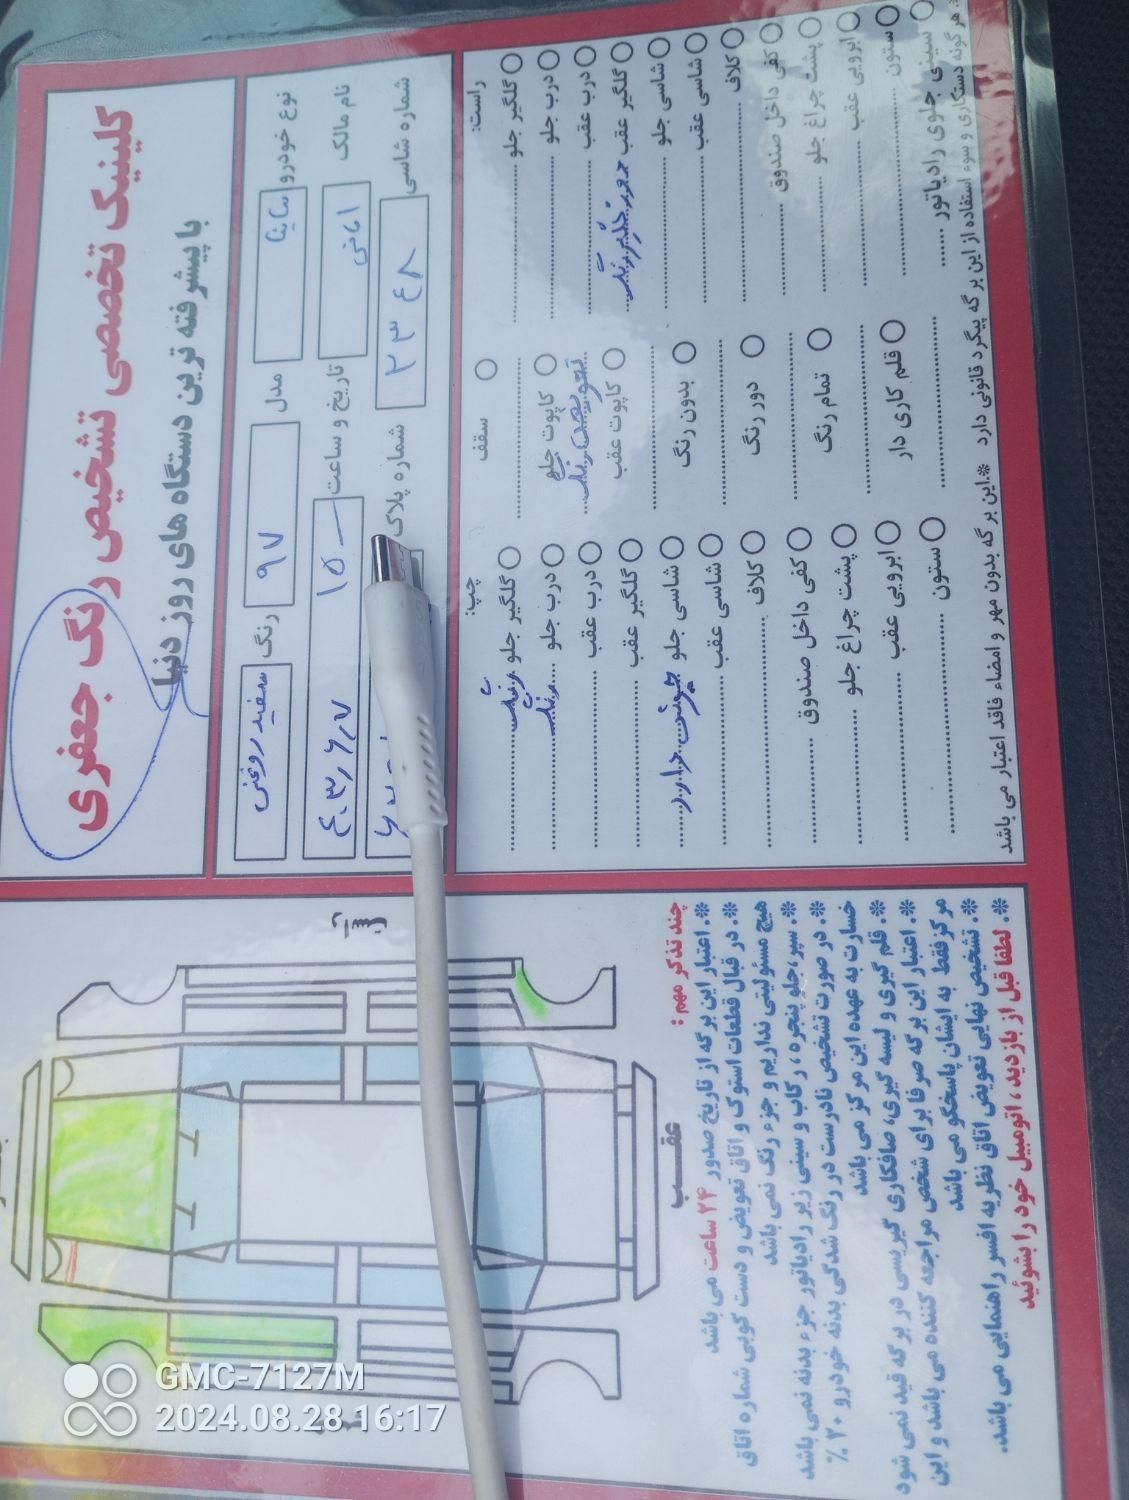 کلینیک تخصصی تشخیص رنگ جعفری
با پیشرفته ترین دستگاه های روز دنیا
نوع خودرو ساینا مدل ۹۷ رنگ سفید روغنی
نام مالک امانی تاریخ و ساعت ۱۵ ۴۰۳/۶/۷
شماره شاسی ۲۳۴۸ شماره پلاک
راست:
گلگیر جلو
درب جلو
درب عقب
گلگیر عقب
شاسی جلو
شاسی عقب
کلاف
کفی داخل صندوق
پشت چراغ جلو
ابرویی عقب
ستون
سینی جلوی رادیاتور
سقف
کاپوت جلو تعویض رنگ
کاپوت عقب
بدون رنگ
دور رنگ
تمام رنگ
قلم کاری دار
چپ:
گلگیر جلو رنگ
درب جلو رنگ
درب عقب
گلگیر عقب
شاسی جلو جوش دارد
شاسی عقب
کلاف
کفی داخل صندوق
پشت چراغ جلو
ابرویی عقب
ستون
هر گونه دستکاری و سوء استفاده از این برگه پیگرد قانونی دارد *این برگه بدون مهر و امضاء فاقد اعتبار می باشد
عقب
چند تذکر مهم :
*. اعتبار این برگه از تاریخ صدور ۲۴ ساعت می باشد
*. در قبال قطعات استوک و اتاق تعویض و دست کوبی شماره اتاق
هیچ مسئولیتی نداریم و جزء رنگ نمی باشد
*. سپر، جلو پنجره، رکاب و سینی زیر رادیاتور جزء بدنه نمی باشد
*. در صورت تشخیص نادرست در رنگ شدگی بدنه خودرو ۲۰ ٪
خسارت به عهده این مرکز می باشد
*. قلم گیری و لیسه گیری، صافکاری گیریسی در برگه قید نمی شود
*. اعتبار این برگه صرفا برای شخص مراجعه کننده می باشد و این
مرکز فقط به ایشان پاسخگو می باشد
*. تشخیص نهایی تعویض اتاق نظریه افسر راهنمایی می باشد.
*. لطفا قبل از بازدید، اتومبیل خود را بشوئید
GMC-7127M
2024.08.28 16:17